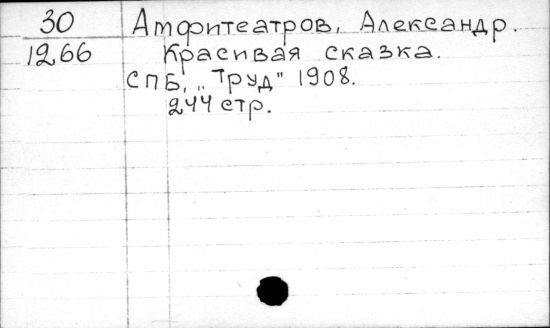 30
1266
Амфитеатров, Александр.
Красивая сказка.
СПБ, „Труд" 1908.
244 стр.